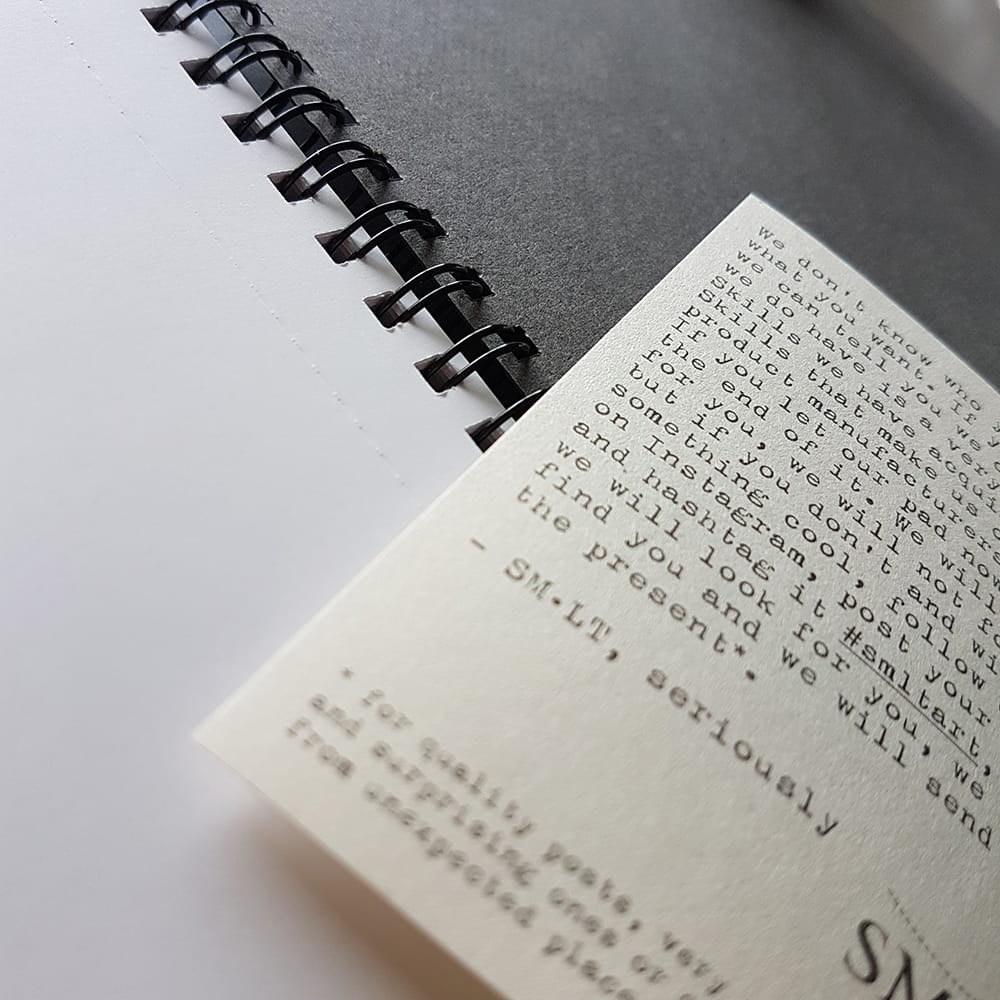 We don't know who
what you want. If y
we can tell you we
we do have is a very
Skills we have acqui
Skills that make us
product manufacturers
If you let our pad now
the end of it. We will
for you, we will not
but if you don't, and
something cool, follow
on Instagram, post your
and hashtag it #smltart,
we will look for you, we
find you and we will send
the present*.
- SM.LT, seriously
* for quality posts, very
and surprising ones or
from unexpected places
SM